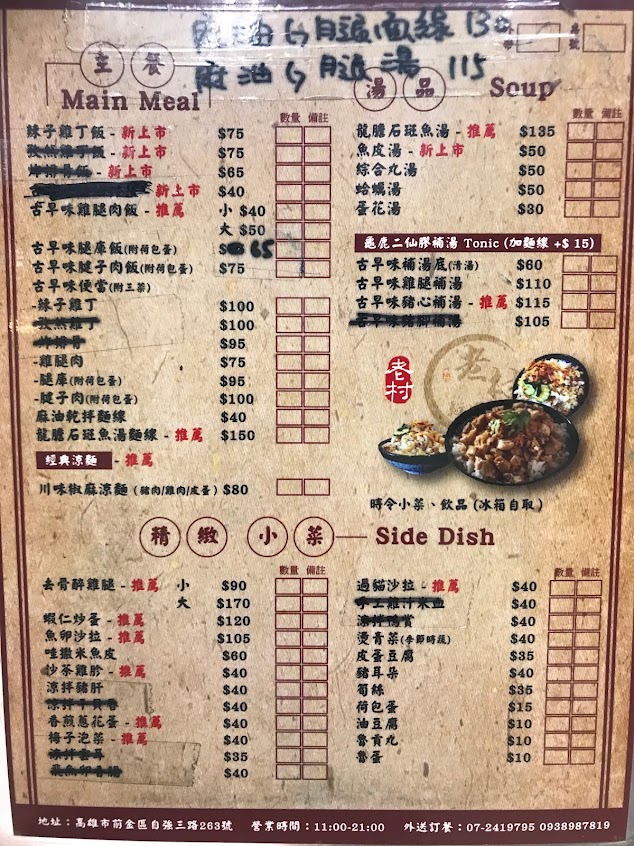 麻油G腿面線 130
麻油G腿湯 115
外帶 桌號
主餐
Main Meal
數量 備註
辣子雞丁飯 - 新上市 $75
孜然雞丁飯 - 新上市 $75
炸排骨飯 - 新上市 $65
新上市 $40
古早味雞腿肉飯 - 推薦 小 $40
大 $50
古早味腿庫飯(附荷包蛋) $65
古早味腱子肉飯(附荷包蛋) $75
古早味便當(附三菜)
-辣子雞丁 $100
-孜然雞丁 $100
-炸排骨 $95
-雞腿肉 $75
-腿庫(附荷包蛋) $95
-腱子肉(附荷包蛋) $100
麻油乾拌麵線 $40
龍膽石斑魚湯麵線 - 推薦 $150
經典涼麵 - 推薦
川味椒麻涼麵(豬肉/雞肉/皮蛋) $80
湯品 Soup
數量 備註
龍膽石斑魚湯 - 推薦 $135
魚皮湯 - 新上市 $50
綜合丸湯 $50
蛤蠣湯 $50
蛋花湯 $30
龜鹿二仙膠補湯 Tonic (加麵線 +$ 15)
古早味補湯底(清湯) $60
古早味雞腿補湯 $110
古早味豬心補湯 - 推薦 $115
古早味豬腳補湯 $105
老村
時令小菜、飲品(冰箱自取)
精緻小菜 Side Dish
數量 備註
去骨醉雞腿 - 推薦 小 $90
大 $170
蝦仁炒蛋 - 推薦 $120
魚卵沙拉 - 推薦 $105
哇撒米魚皮 $60
沙茶雞胗 - 推薦 $40
涼拌豬肝 $40
涼拌干貝唇 $40
香煎蔥花蛋 - 推薦 $40
梅子泡菜 - 推薦 $40
$35
$40
數量 備註
過貓沙拉 - 推薦 $40
手工雞汁米血 $40
涼拌鴨賞 $40
燙青菜(季節時蔬) $40
皮蛋豆腐 $35
豬耳朵 $40
筍絲 $35
荷包蛋 $15
油豆腐 $10
魯貢丸 $10
魯蛋 $10
地址：高雄市前金區自強三路263號 營業時間：11:00-21:00 外送訂餐：07-2419795 0938987819